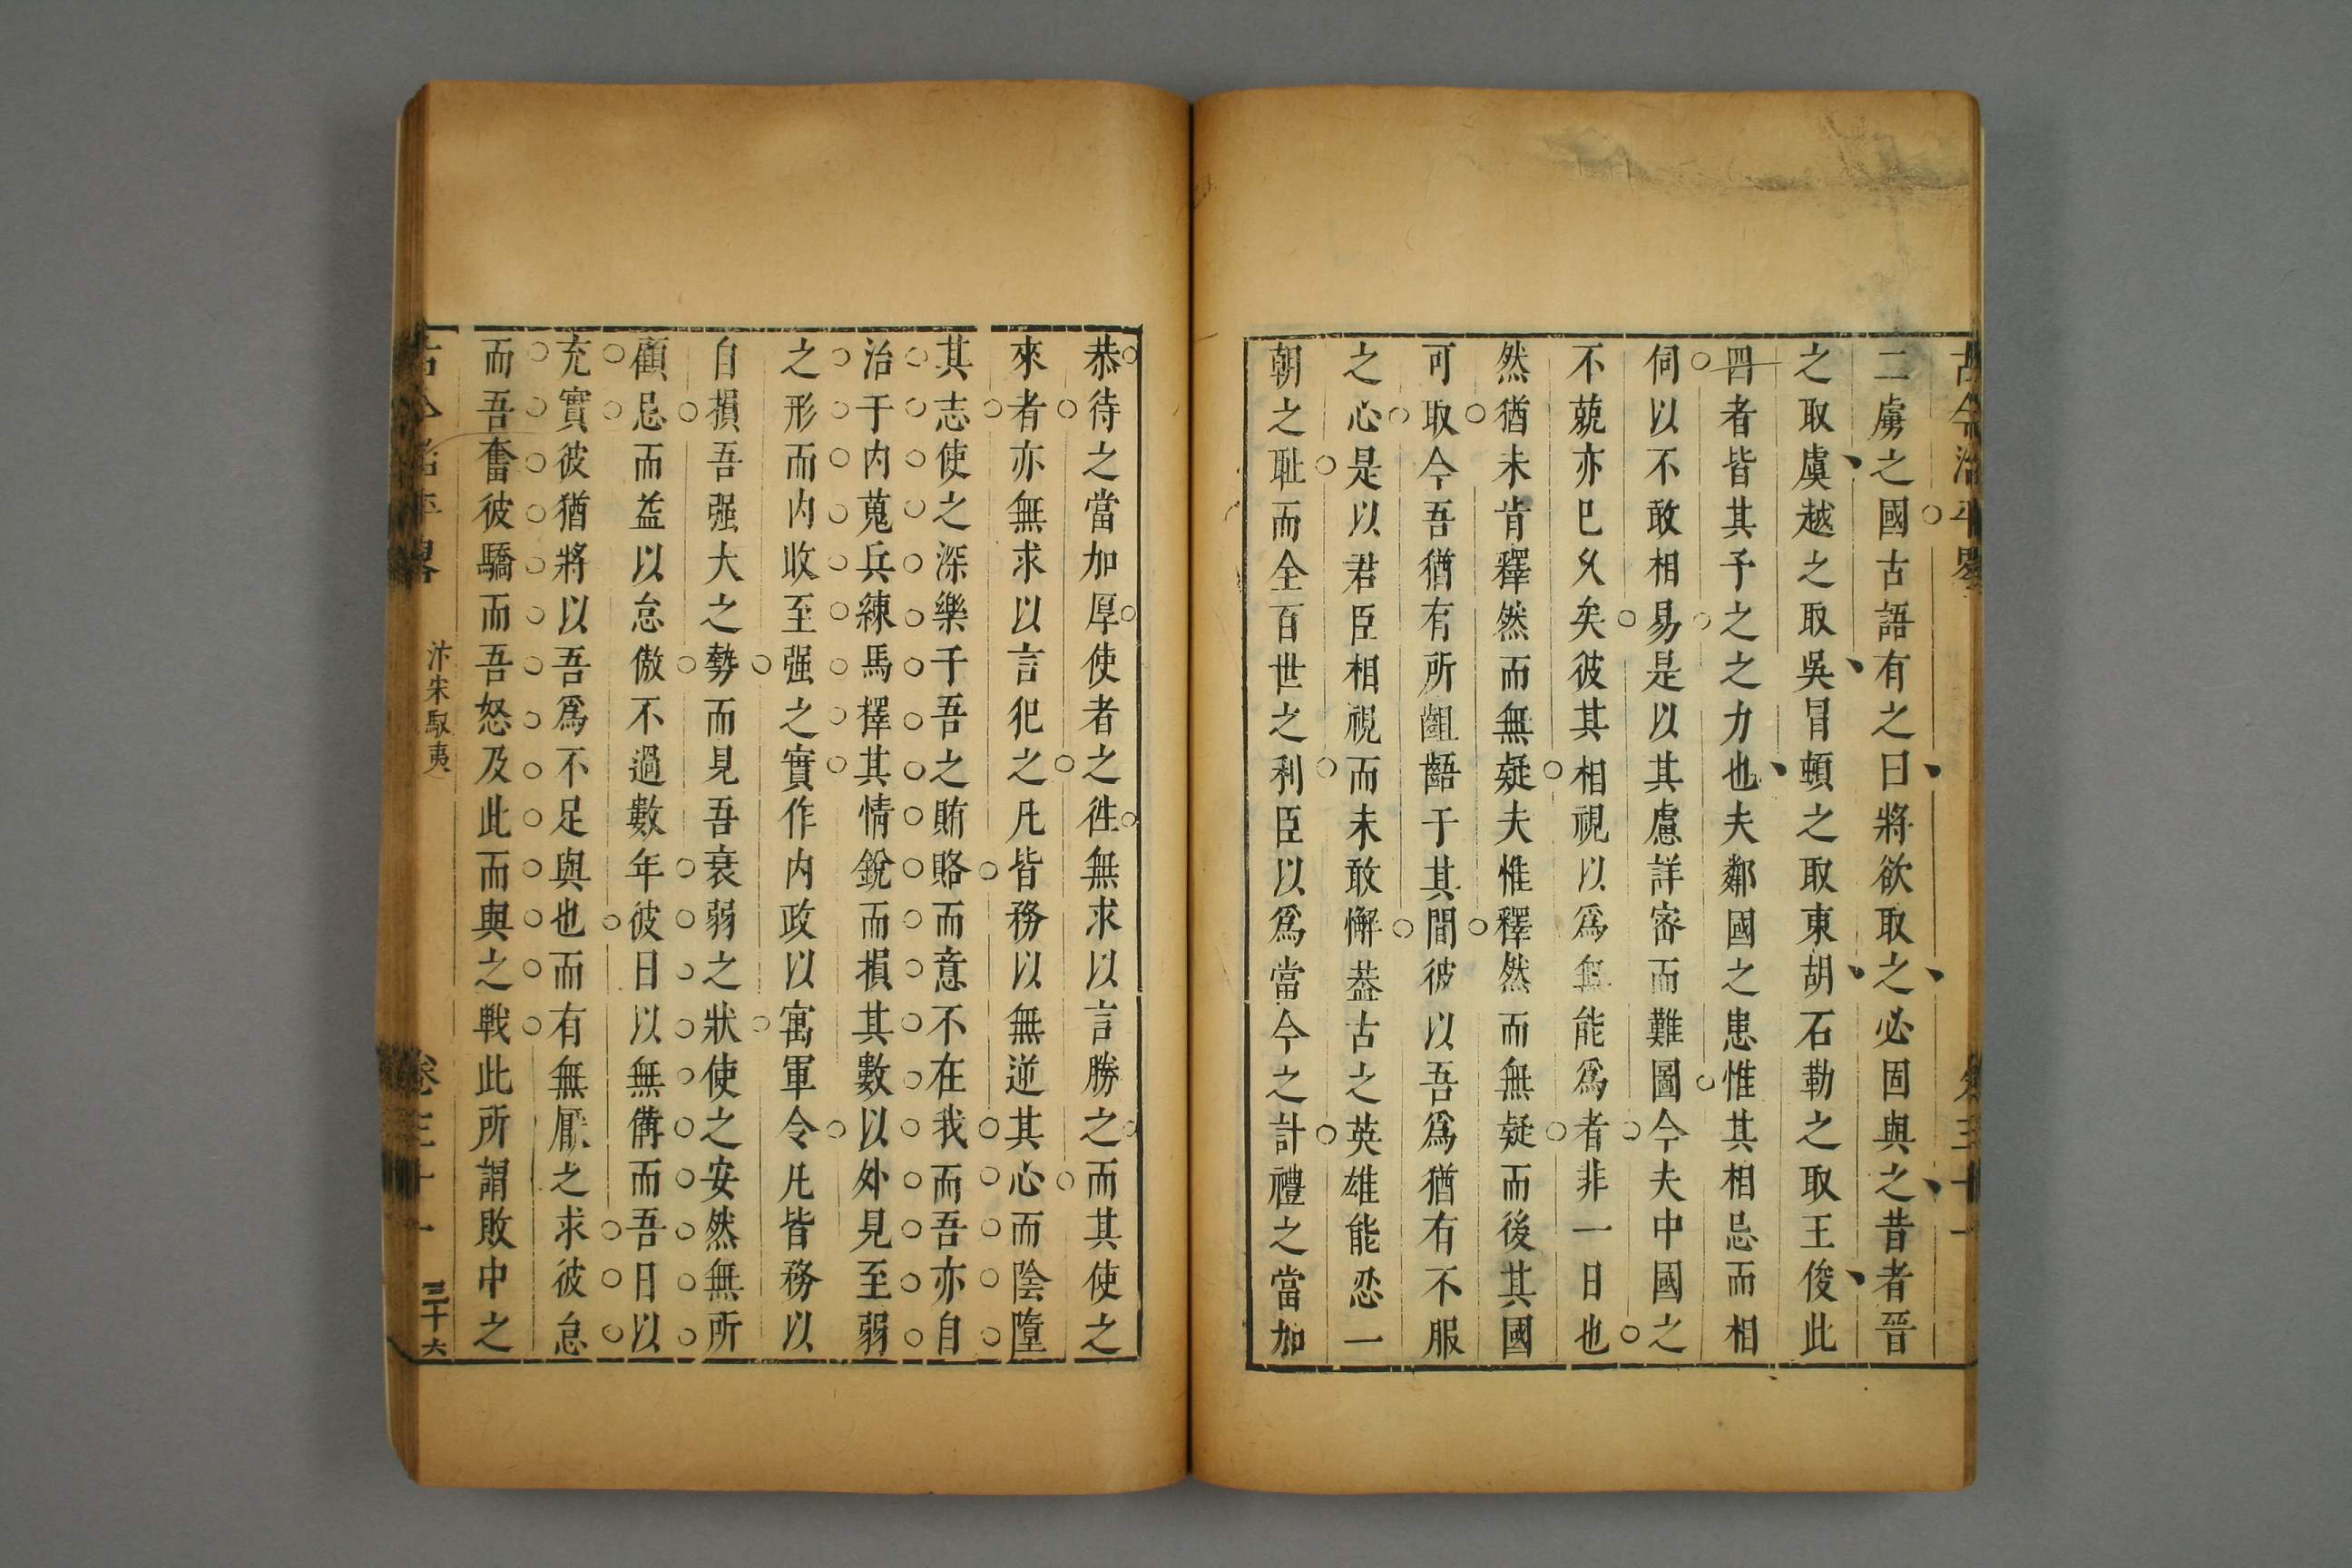 古今治平畧
二虜之國古語有之曰將欲取之必固與之昔者晉
之取虞越之取吳冒頓之取東胡石勒之取王俊此
四者皆其予之之力也夫鄰國之患惟其相忌而相
伺以不敢相易是以其慮詳審而難圖今夫中國之
不兢亦已久矣彼其相視以爲無能爲者非一日也
然猶未肯釋然而無疑夫惟釋然而無疑而後其國
可取今吾猶有所齟齬于其間彼以吾爲猶有不服
之心是以君臣相視而未敢懈葢古之英雄能忍一
朝之耻而全百世之利臣以爲當今之計禮之當加
恭待之當加厚使者之徃無求以言勝之而其使之
來者亦無求以言犯之凡皆務以無逆其心而陰墮
其志使之深樂于吾之賄賂而意不在我而吾亦自
治于内蒐兵練馬擇其情銳而損其數以外見至弱
之形而内收至强之實作内政以寓軍令凡皆務以
自損吾强大之勢而見吾衰弱之狀使之安然無所
顧忌而益以怠傲不過數年彼日以無備而吾日以
充實彼猶將以吾爲不足與也而有無厭之求彼怠
而吾奮彼驕而吾怒及此而與之戰此所謂敗中之
古今治平畧 汴宋馭夷 卷三十一 三十六